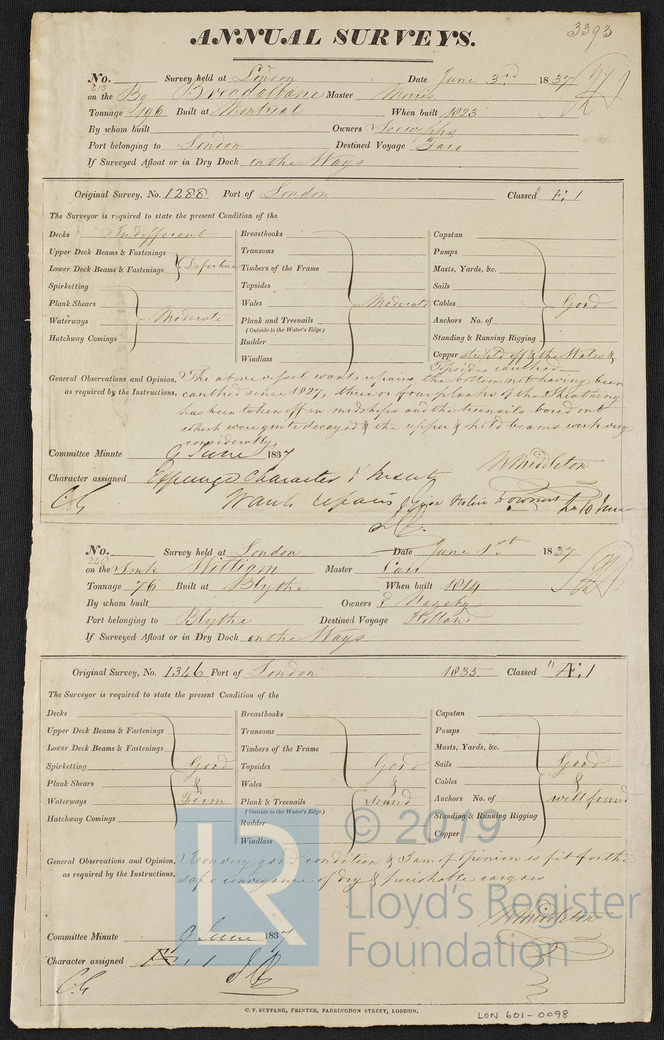 3393
ANNUAL SURVEYS.
No. Survey held at London Date June 3rd 1837
on the Bg Breadalbane Master
Tonnage 196 Built at Montreal When built 1823
By whom built Owners
Port belonging to London Destined Voyage
If Surveyed Afloat or in Dry Dock on the Ways
Original Survey, No. 1288 Port of London Classed E.1
The Surveyor is required to state the present Condition of the
Decks Indifferent Breasthooks Capstan
Upper Deck Beams & Fastenings Transoms Pumps
Lower Deck Beams & Fastenings Defective Timbers of the Frame Masts, Yards, &c.
Spirketting Topsides Sails
Plank Shears Wales Moderate Cables Good
Waterways Moderate Plank and Treenails Anchors No. of
(Outside to the Water's Edge)
Hatchway Comings Rudder Standing & Running Rigging
Windlass Copper stript off & the Wales &
Topsides caulked
General Observations and Opinion, The above vessel wants repairs, the bottom not having been
as required by the Instructions, caulked since 1827, three or four planks of the Sheathing
has been taken off in midships and the treenails bored out
which were quite decayed & the upper & hold beams work very
considerably
Committee Minute 9 June 1837
W Middleton
Character assigned Expunge Character &
C.G Wants repairs & Give Notice to owners 10 June
No. Survey held at London Date June 1st 1837
on the Smk William Master
Tonnage 76 Built at Blythe When built 1814
By whom built Owners
Port belonging to Blythe Destined Voyage Holland
If Surveyed Afloat or in Dry Dock on the Ways
Original Survey, No. 1346 Port of London 1835 Classed "Æ.1
The Surveyor is required to state the present Condition of the
Decks Breasthooks Capstan
Upper Deck Beams & Fastenings Transoms Pumps
Lower Deck Beams & Fastenings Timbers of the Frame Masts, Yards, &c.
Spirketting Good Topsides Good Sails Good
Plank Shears & Wales & Cables &
Waterways Firm Plank & Treenails Sound Anchors No. of well found
(Outside to the Water's Edge)
Hatchway Comings Rudder Standing & Running Rigging
Windlass Copper
General Observations and Opinion, In very good condition & I am of opinion is fit for the
as required by the Instructions, safe conveyance of dry & perishable cargoes
W Middleton
Committee Minute 9 June 1837
Character assigned Æ.1
C.G
C. F. SEYFANG, PRINTER, FARRINGDON STREET, LONDON.
LON 601-0098
LR
© 2019
Lloyd's Register
Foundation